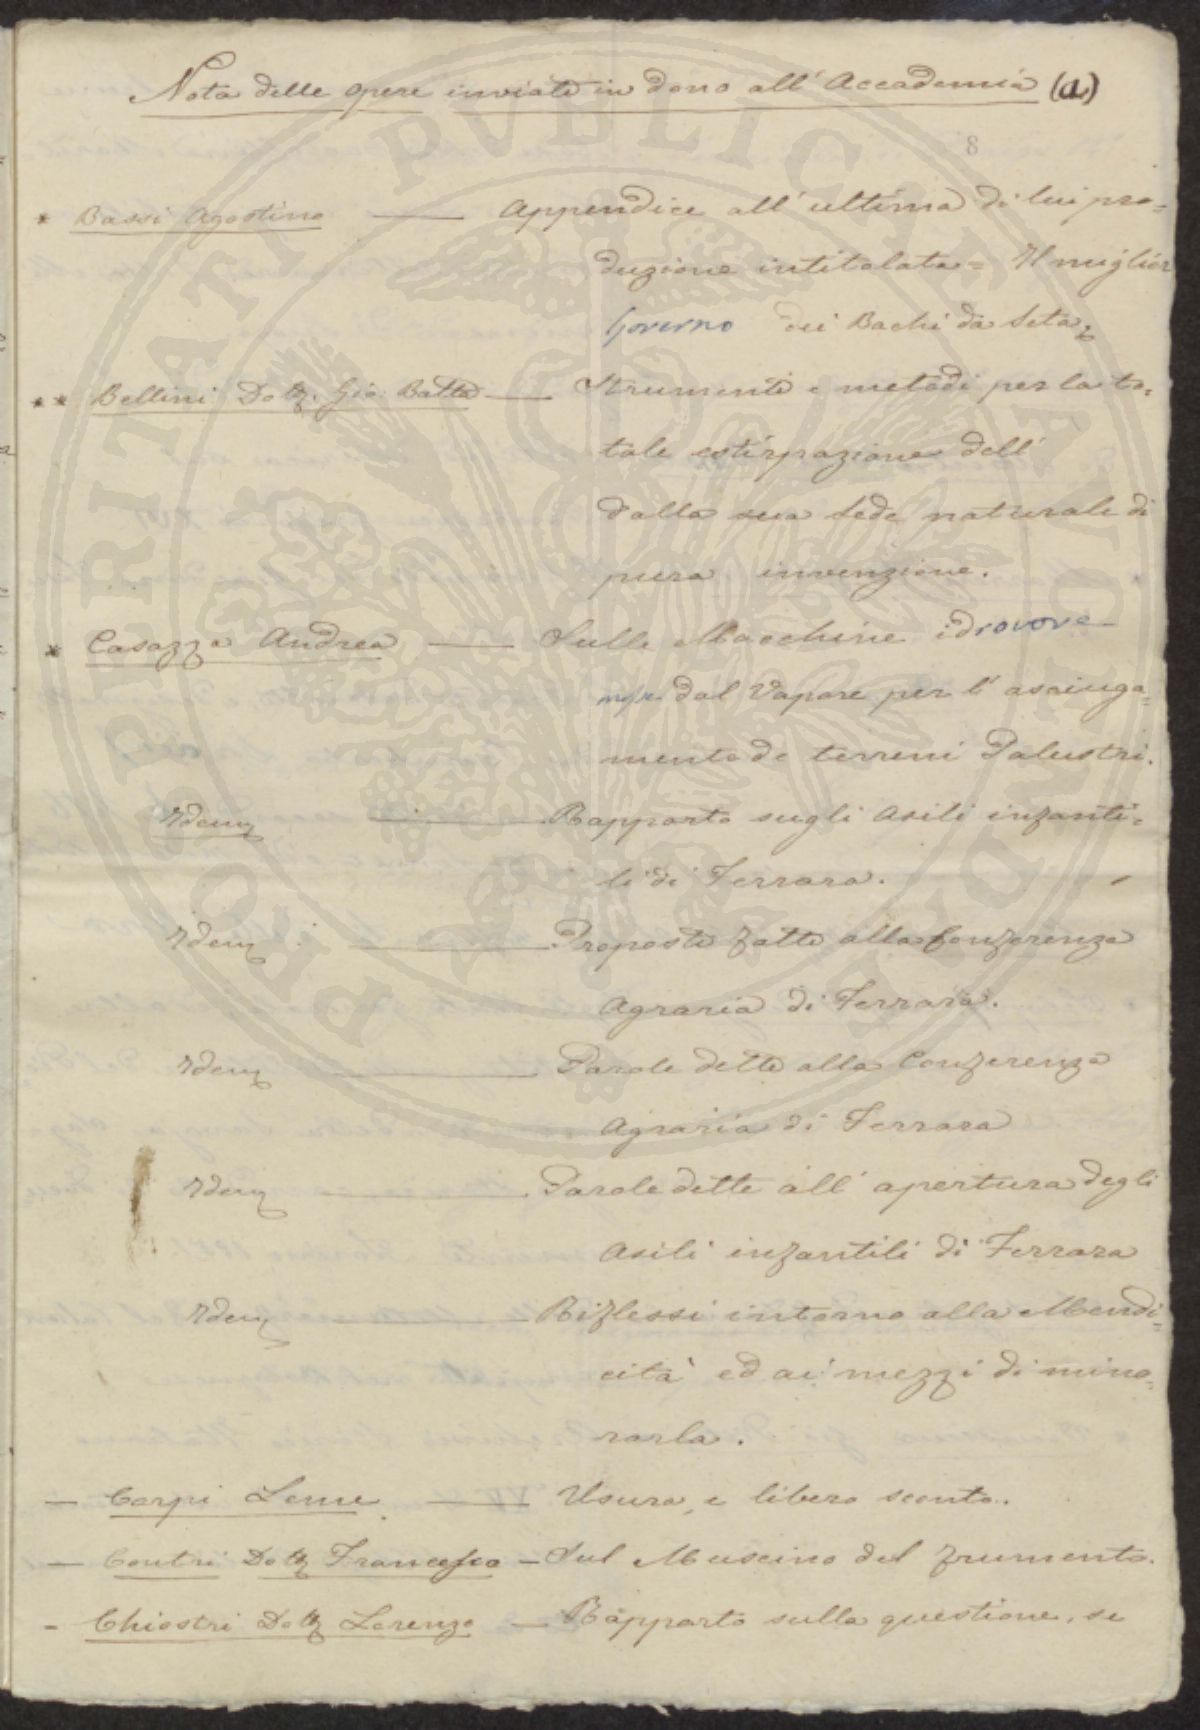 Nota delle opere inviate in dono all' Accademia (a)
8
* Bassi Agostino — Appendice all' ultima di lui pro=
duzione intitolata = Il miglior
Governo dei Bachi da Seta
** Bellini Dott. Gio: Batta — Strumenti e metodi per la to=
tale estirpazione dell'
dalla sua sede naturale di
pura invenzione.
* Casazza Andrea — Sulle Macchine idrovore
mosse dal Vapore per l' asciuga=
mento de terreni Palustri.
Idem — Rapporto sugli Asili infanti=
li di Ferrara.
Idem — Proposte fatte alla Conferenza
Agraria di Ferrara.
Idem — Parole dette alla Conferenza
Agraria di Ferrara
Idem — Parole dette all' apertura degli
Asili infantili di Ferrara
Idem — Riflessi intorno alla Mendi=
cità ed ai mezzi di mino=
rarla.
— Carpi Leone — Usura, e libero sconto.
— Contri Dott Francesco — Sul Moscino del frumento.
— Chiostri Dott Lorenzo — Rapporto sulla questione, se
PROSPERITATI PVBLICAE AVGENDAE